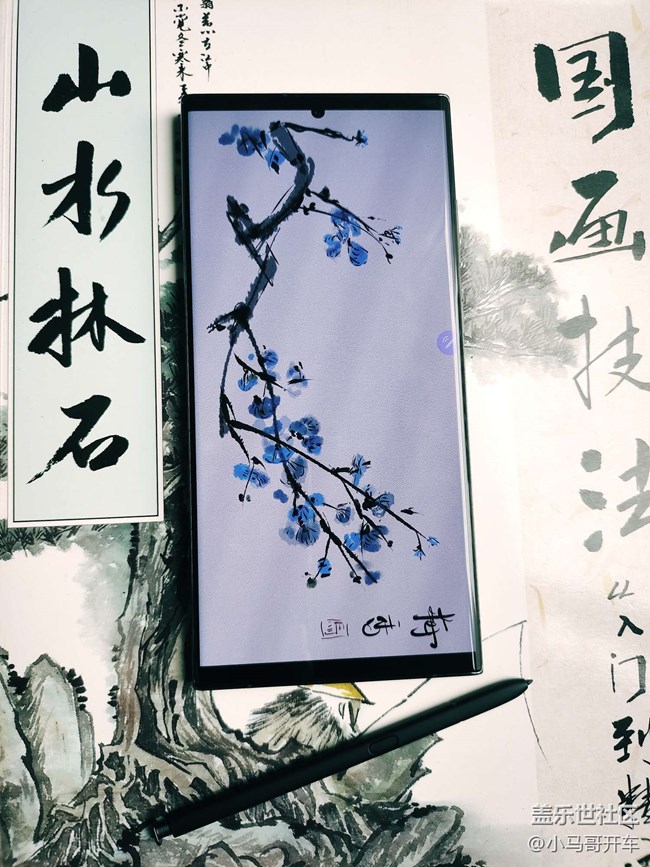 山水林石
国画技法
从入门到精
盖乐世社区
@小马哥开车